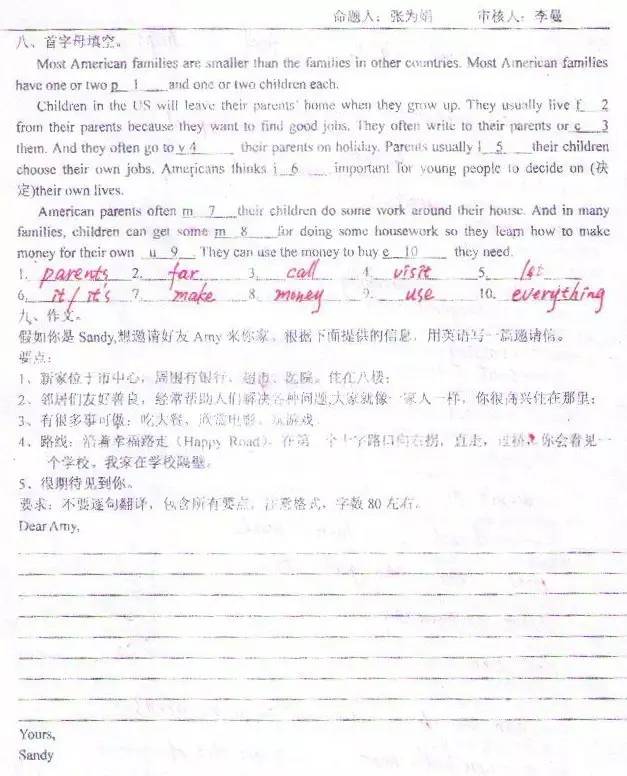 命题人：张为娟 审核人：李曼
八、首字母填空。
Most American families are smaller than the families in other countries. Most American families
have one or two p 1 and one or two children each.
Children in the US will leave their parents' home when they grow up. They usually live f 2
from their parents because they want to find good jobs. They often write to their parents or c 3
them. And they often go to v 4 their parents on holiday. Parents usually l 5 their children
choose their own jobs. Americans thinks i 6 important for young people to decide on (决
定)their own lives.
American parents often m 7 their children do some work around their house. And in many
families, children can get some m 8 for doing some housework so they learn how to make
money for their own u 9 They can use the money to buy e 10 they need.
1. parents 2. far 3. call 4. visit 5. let
6. it / it's 7. make 8. money 9. use 10. everything
九、作文。
假如你是 Sandy,想邀请好友 Amy 来你家。根据下面提供的信息，用英语写一篇邀请信。
要点：
1、新家位于市中心，周围有银行、超市、医院。住在八楼；
2、邻居们友好善良，经常帮助人们解决各种问题,大家就像一家人一样，你很高兴住在那里；
3、有很多事可做：吃大餐，欣赏电影，玩游戏
4、路线：沿着幸福路走（Happy Road），在第一个十字路口向右拐，直走，过桥 你会看见一
个学校。我家在学校隔壁。
5、很期待见到你。
要求：不要逐句翻译，包含所有要点，注意格式，字数 80 左右。
Dear Amy,
Yours,
Sandy